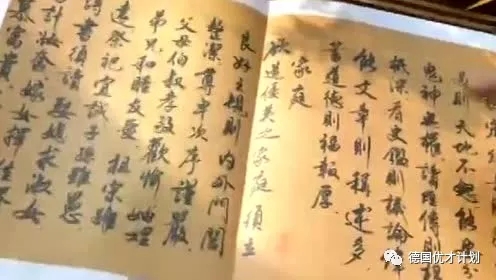 則天地不能
鬼神無權讀經傳則
根深看史鑑則議論
能文章則稱述多
蓄道德則福報厚
家庭
欲造優美之家庭須立
良好之規則內外門閭
整潔尊卑次序謹嚴
父母伯叔孝敬歡愉妯娌
弟兄和睦友愛祖宗雖
遠祭祀宜誠子孫雖愚
書須讀娶媳求淑女
計妝奩嫁女擇佳
富貴
德国优才计划